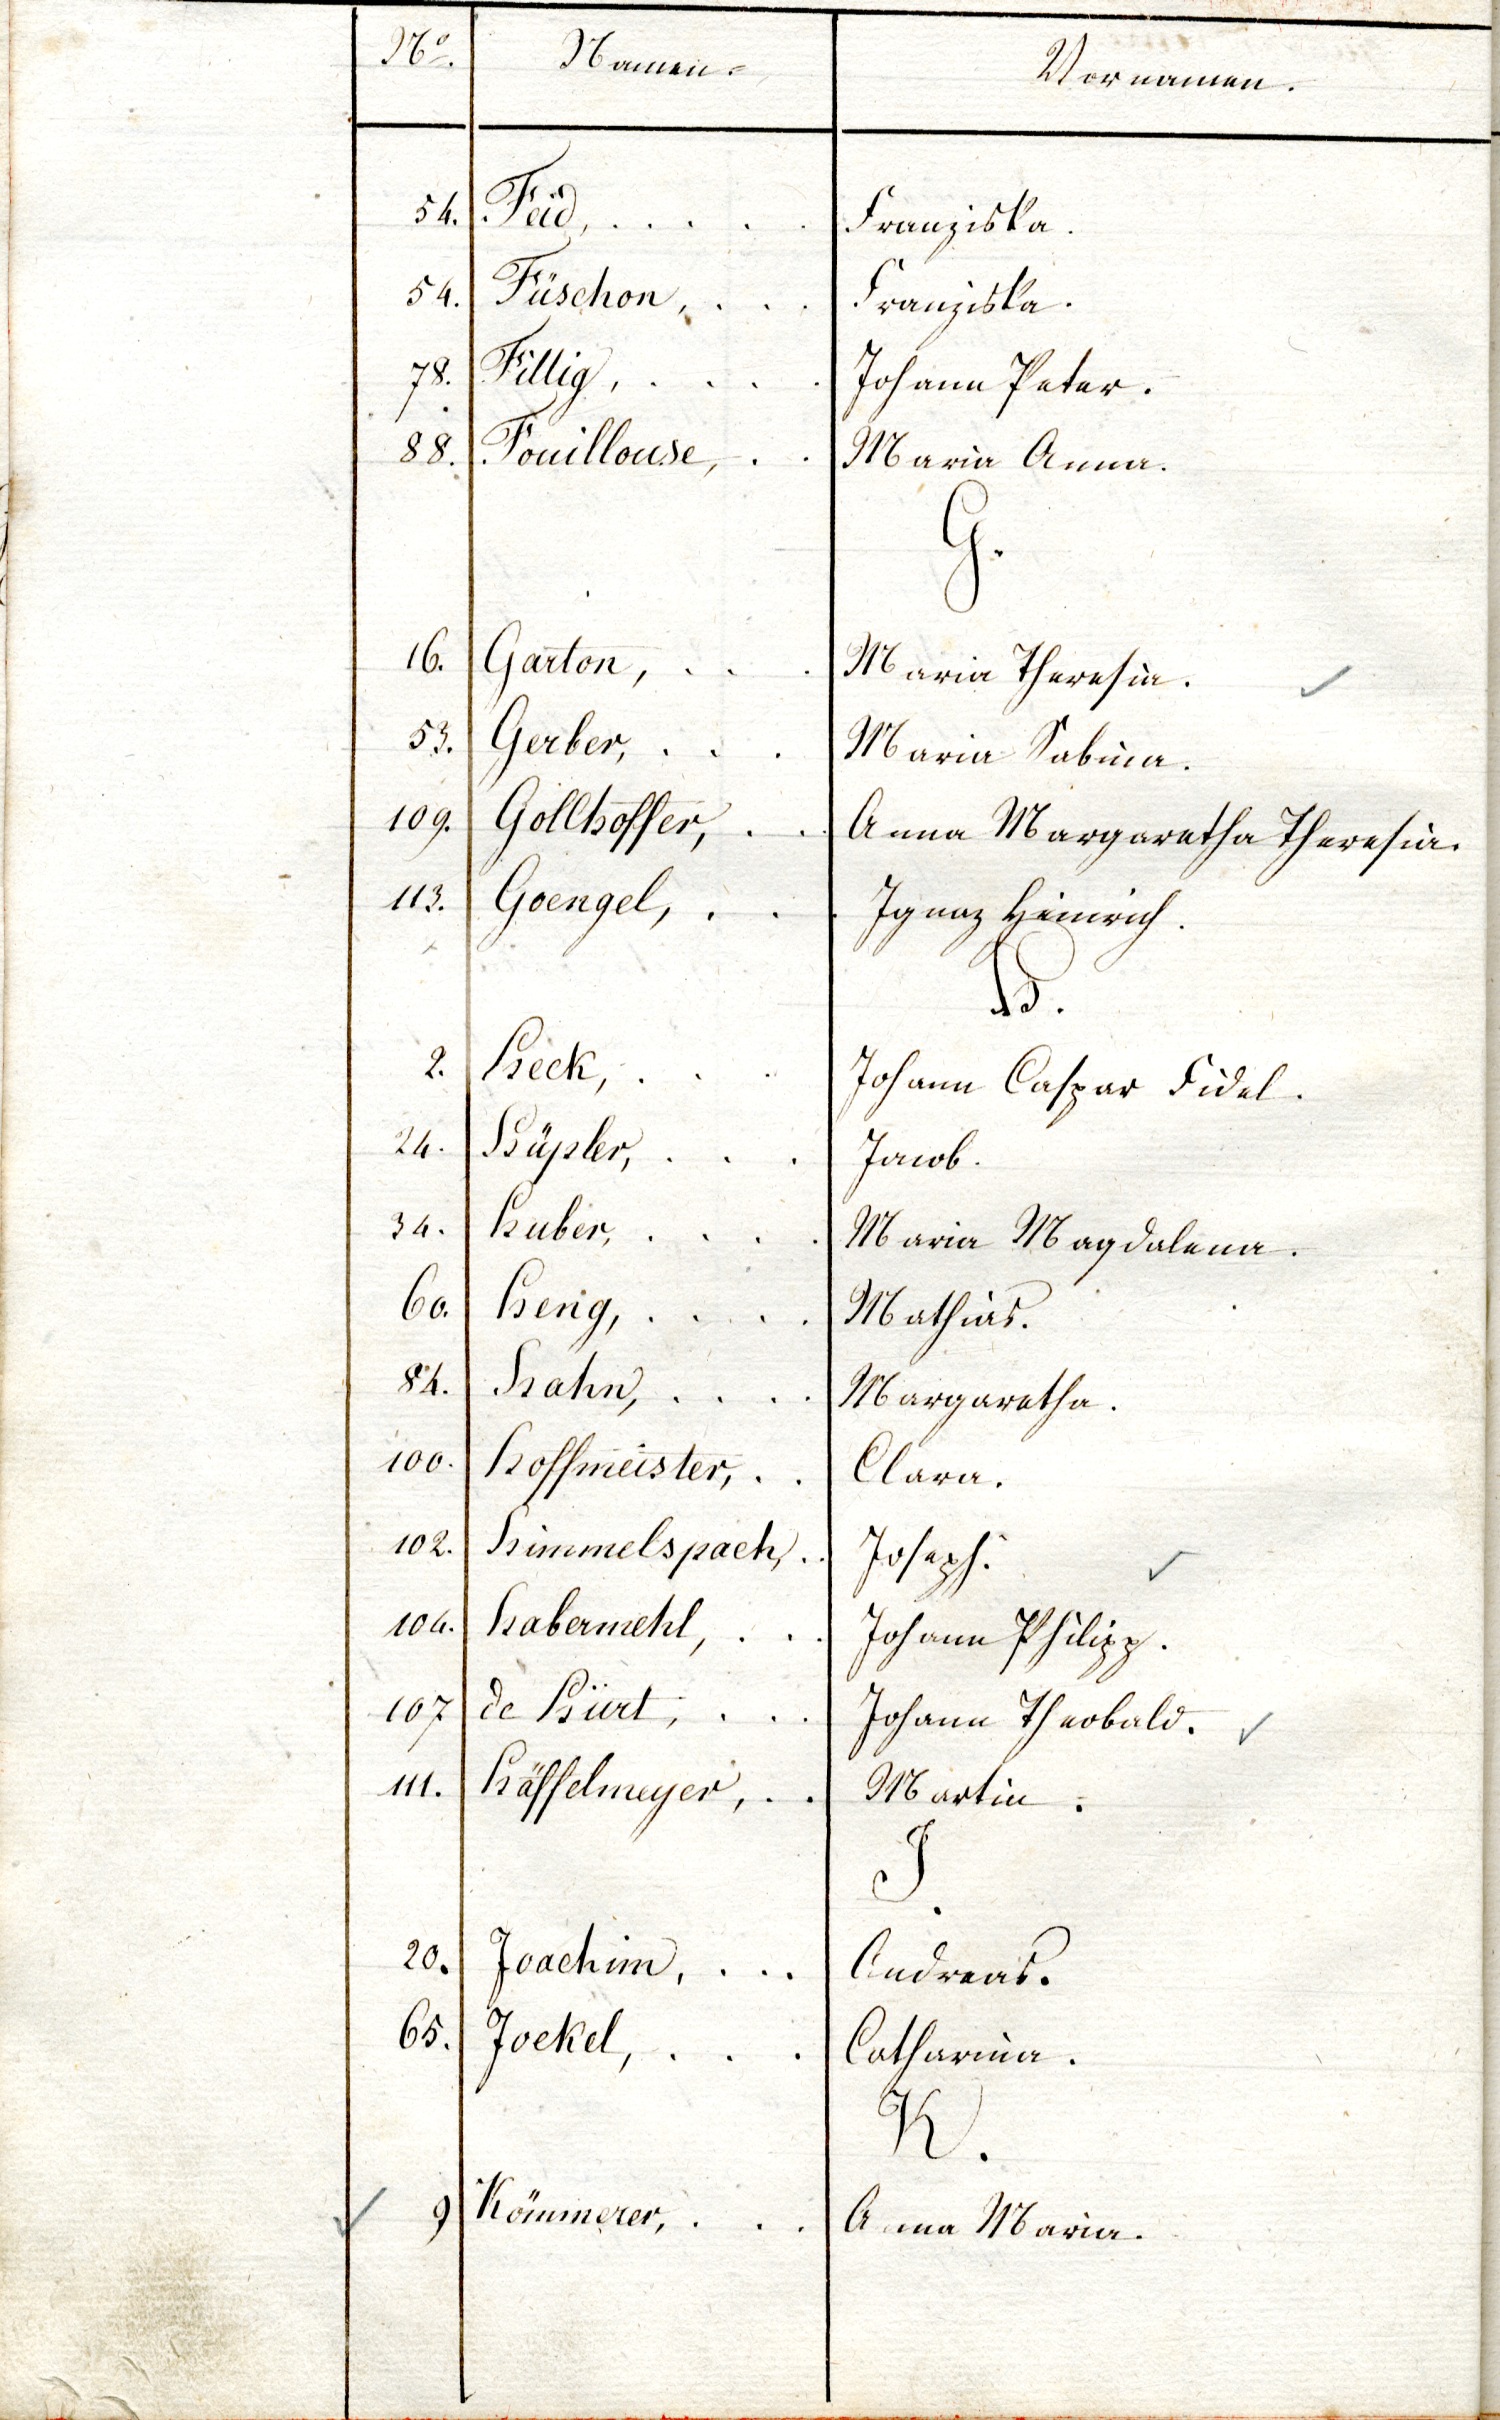 No. Namen. Vornamen.
54. Feid, . . . . Franziska.
54. Füschon, . . . Franziska.
78. Fillig, . . . . Johann Peter.
88. Fouillouse, . . Maria Anna.
G.
16. Garton, . . . Maria Theresia.
53. Gerber, . . . Maria Sabina.
109. Gollhoffer, . . Anna Margaretha Theresia.
113. Goengel, . . . Ignaz Heinrich.
H.
2. Heck, . . . Johann Caspar Fidel.
24. Hüpler, . . . Jacob.
34. Huber, . . . . Maria Magdalena.
60. Henig, . . . . Mathias.
84. Hahn, . . . . Margaretha.
100. Hoffmeister, . . Clara.
102. Himmelspach, . . Joseph.
104. Habermehl, . . . Johann Philipp.
107 de Hürt, . . . Johann Theobald.
111. Häffelmeyer, . . Martin.
J.
20. Joachim, . . . Andreas.
65. Joekel, . . . Catharina.
K.
9 Kömmerer, . . . Anna Maria.